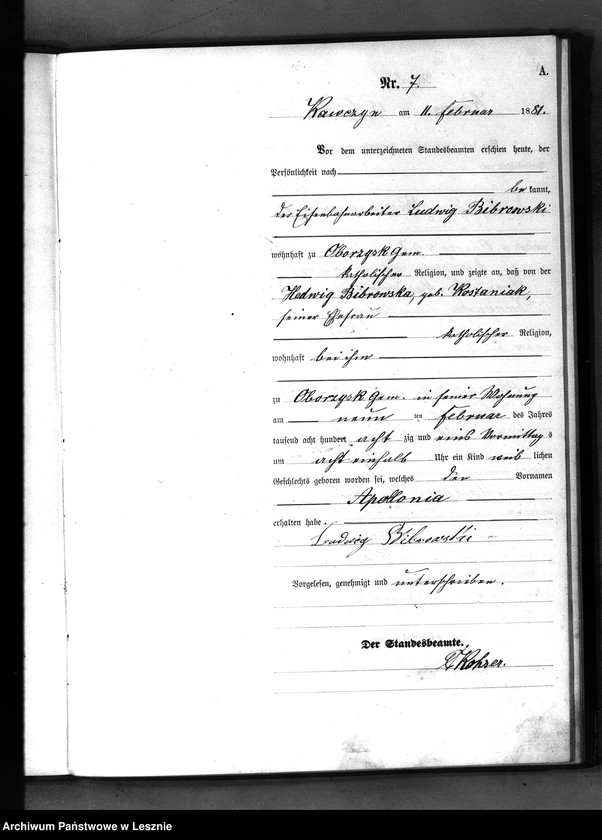 A.
Nr. 7.
Kawczyn am 11. Februar 1881.
Vor dem unterzeichneten Standesbeamten erschien heute, der
Persönlichkeit nach
be kannt,
der Eisenbahnarbeiter Ludwig Bibrowski
wohnhaft zu Oborzysk Gem.
katholischer Religion, und zeigte an, daß von der
Hedwig Bibrowska, geb. Kostaniak,
seiner Ehefrau
katholischer Religion,
wohnhaft bei ihm
zu Oborzysk Gem. in seiner Wohnung
am neun ten Februar des Jahres
tausend acht hundert acht zig und eins Vormittag s
um acht einhalb Uhr ein Kind weib lichen
Geschlechts geboren worden sei, welches den Vornamen
Apollonia
erhalten habe.
Ludwig Bibrowski
Vorgelesen, genehmigt und unterschrieben.
Der Standesbeamte.
Kohrer.
Archiwum Państwowe w Lesznie